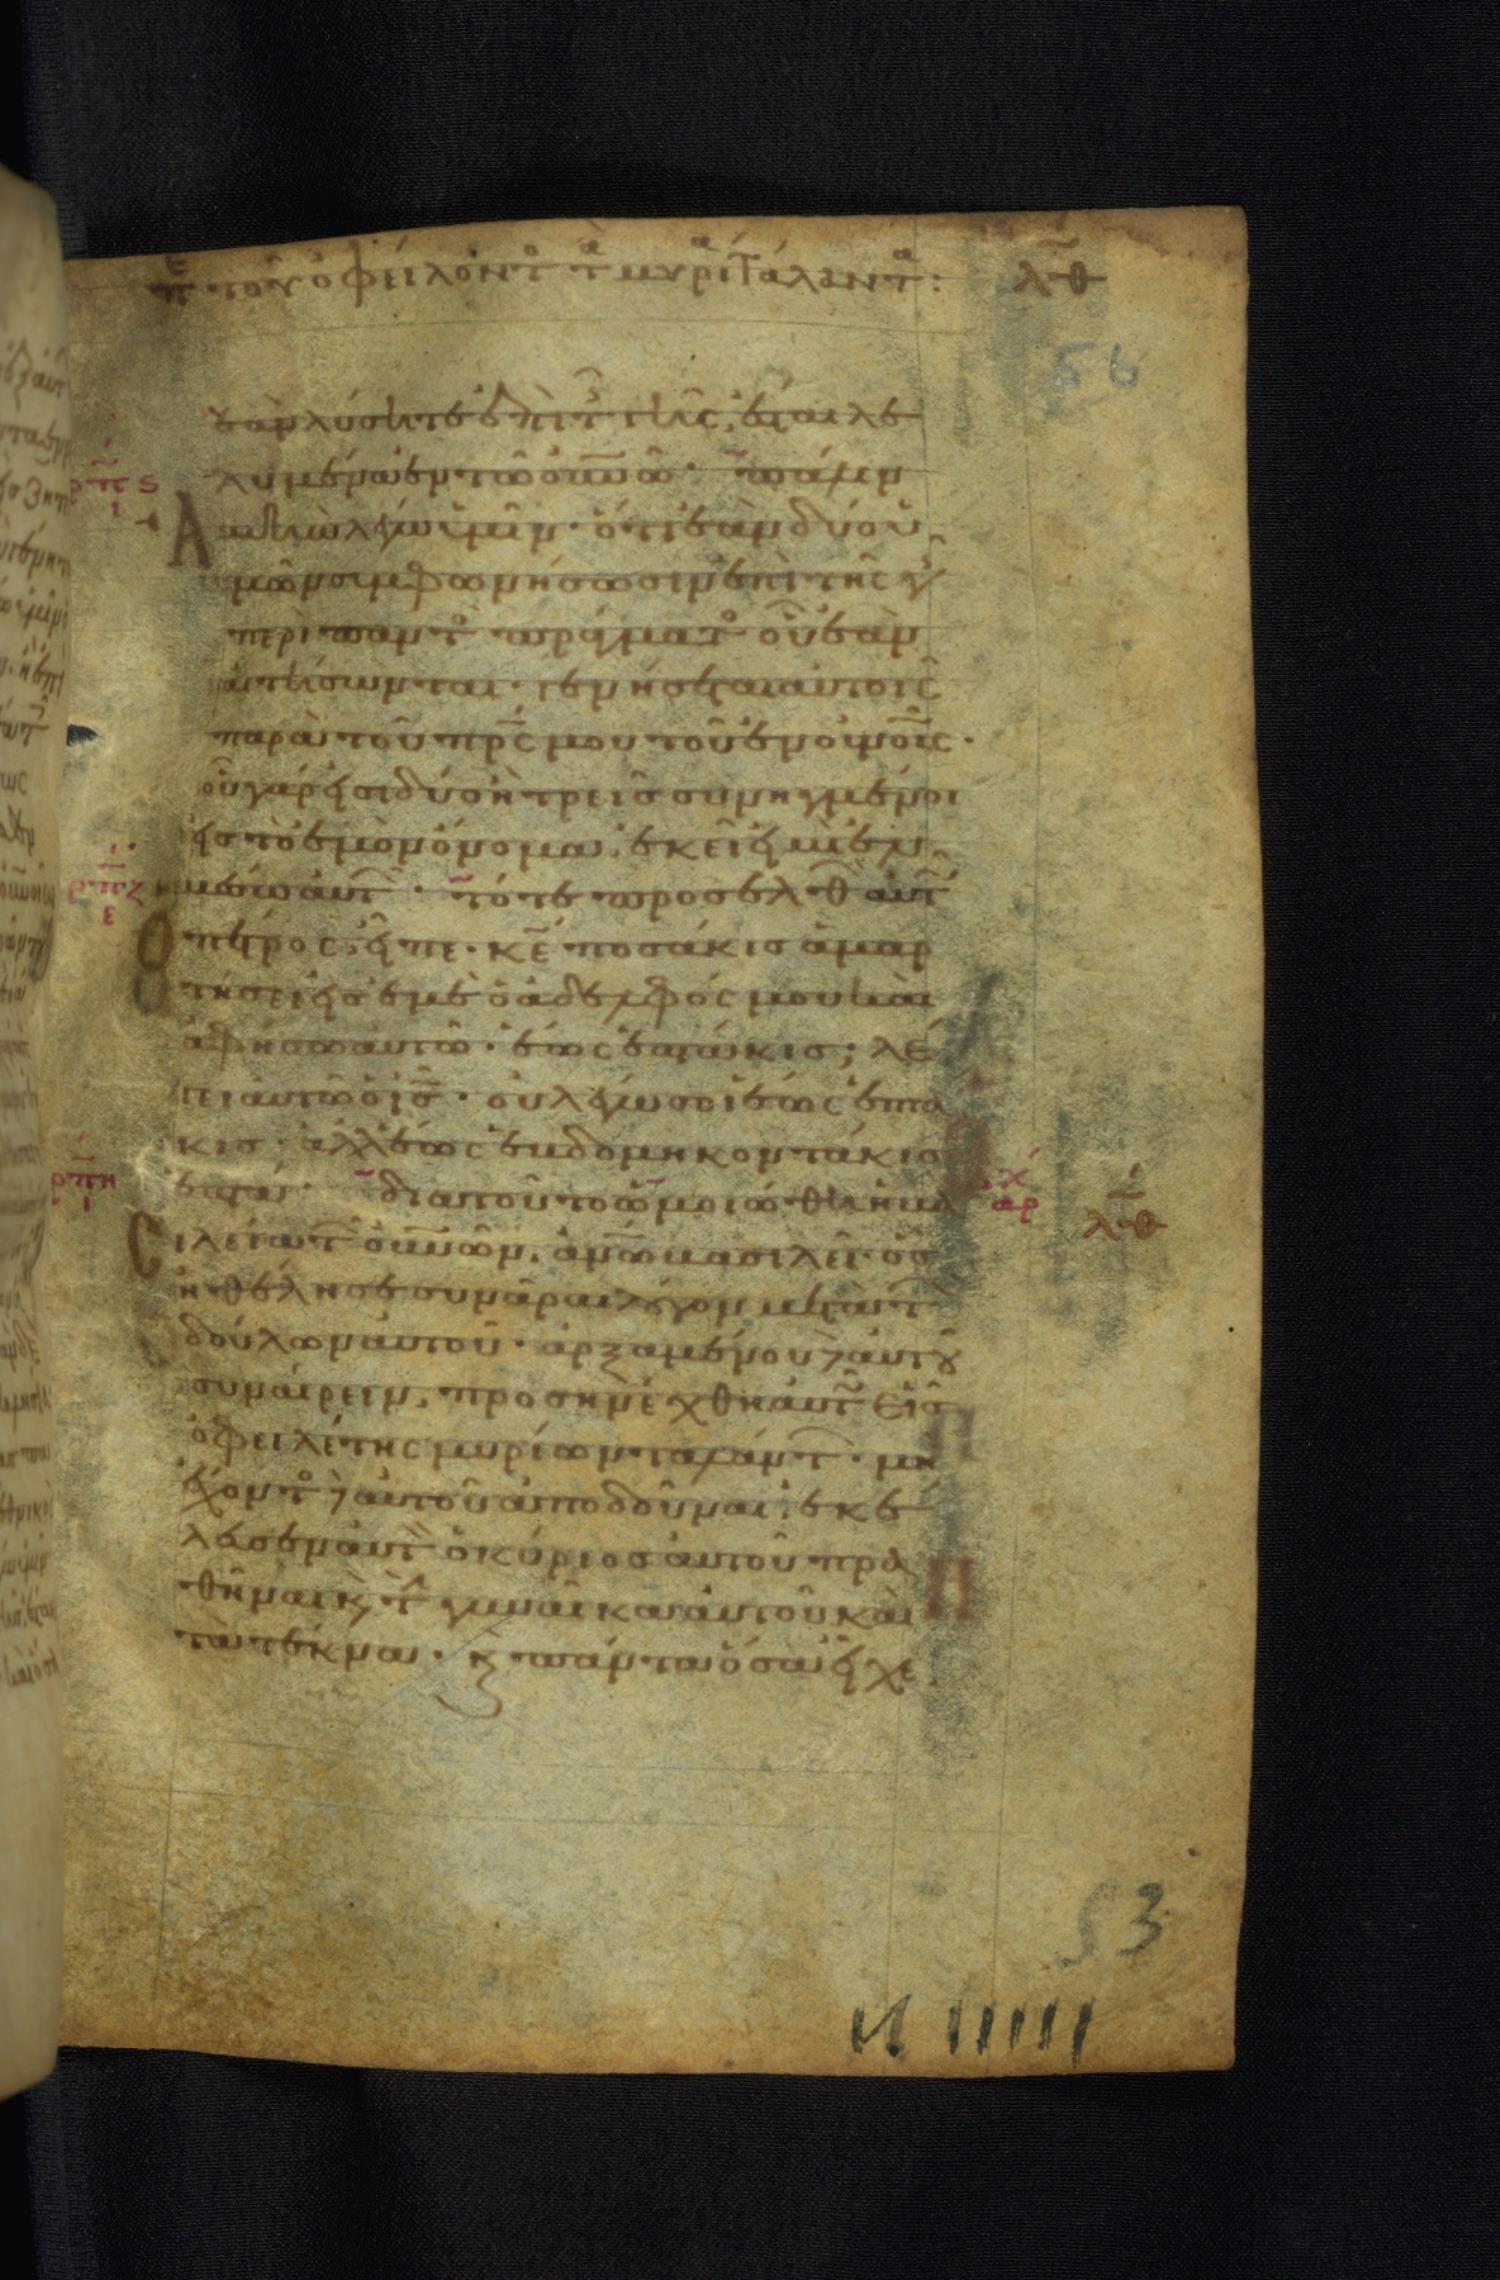 πε τοῦ ὀφείλοντ τ μυρί ταλαντ: λθ
56
ἐὰν λύσητε ἐπὶ τ γῆς, ἔσται λε
λυμένα ἐν τῶ οὐνῶ. πάλιν
ρπς
ι
Ἀμὴν λέγω ὑμῖν. ὅτι ἐὰν δύο ὑ
μῶν συμφωνήσωσιν ἐπὶ τῆς γ
περὶ παντ πράγματ οὗ ἐὰν
αἰτήσωνται. γενήσεται αὐτοῖς
παρὰ τοῦ πρς μου τοῦ ἐν οὐνοῖς.
οὗ γάρ εἰσι δύο ἢ τρεῖς συνηγμένοι
εἰς τὸ ἐμὸν ὄνομα, ἐκεῖ εἰμὶ ἐν
ρπζ
ε
μέσω αὐτ. τότε προσελθ αὐτ
ὁ πέτρος, εἶπε. κε ποσάκις ἁμαρ
τήσει εἰς ἐμὲ ὁ ἀδελφός μου καὶ
ἀφήσω αὐτῶ. ἕως ἑπτάκις; λέ
γει αὐτῶ ὁ ις. οὐ λέγω σοι ἕως ἑπτά
κις. ἀλλ ἕως ἑβδομηκοντάκις
ρπη
ι
ἑπτά. διατοῦτο ὡμοιώθη ἡ βα
λθ
σιλεία τ οὐνῶν, ἀνω βασιλεῖ. ὃς
ἠθέλησε συνᾶραι λόγον μετὰ τ
δούλων αὐτοῦ. ἀρξαμένου αὐτοῦ
συναίρειν, προσηνέχθη αὐτ εἷς
ὀφειλέτης μυρίων ταλάντ. μὴ
ἔχοντ αὐτοῦ ἀποδοῦναι, ἐκέ
λευσεν αὐτ ὁ κύριος αὐτοῦ πρα
θῆναι κ τ γυναῖκα αὐτοῦ καὶ
τὰ τέκνα. κ πάντα ὅσα εἶχε
53